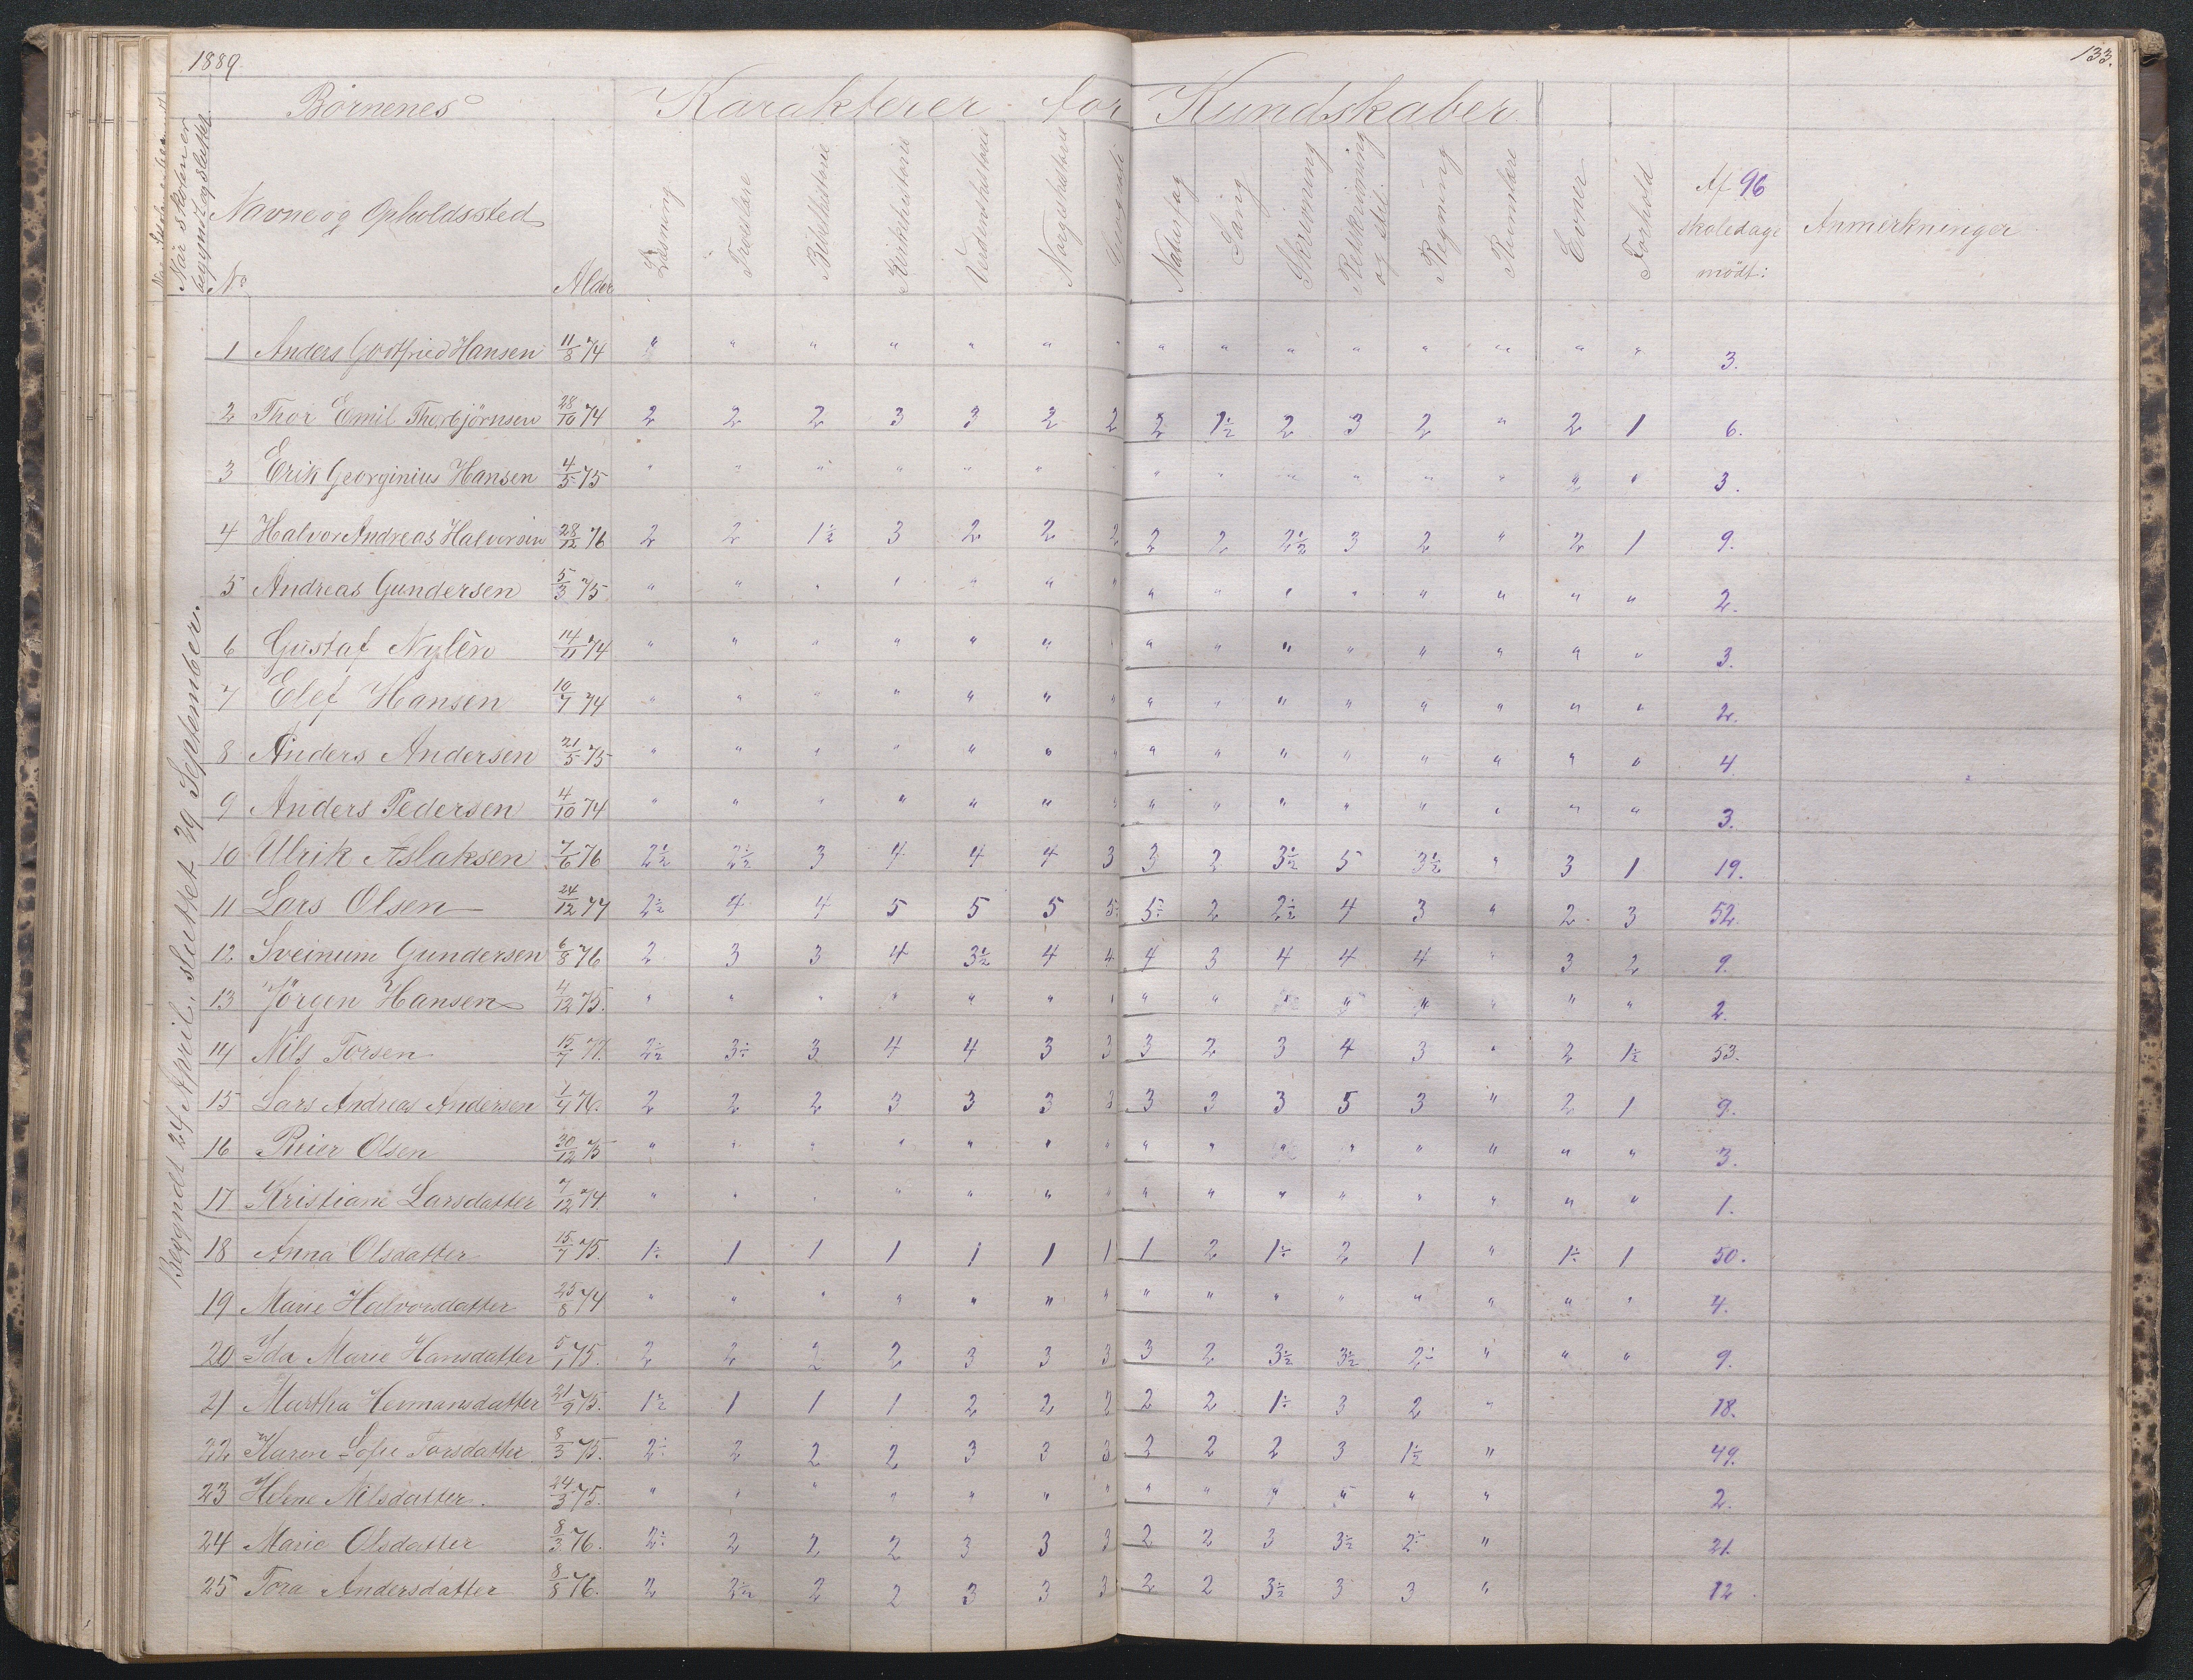 1889.
133.
Börnenes
Karakterer for Kundskaber.
Når skolen er begyndt og sluttet.
Navne og Opholdssted
No
Alder
Læsning
Troeslære
Bibelhistorie
Kirkehistorie
Verdenshistorie
Norgeshistorie
Naturfag
Sang
Skrivning
Retskrivning og stil.
Regning
Rumlære
Evner
Forhold
Af 96 skoledage mödt:
Anmerkninger
Begyndt 24 April, sluttet 29 September.
1 Anders Gotfried Hansen 11/8 74 " " " " " " " " " " " " " " " 3.
2 Thor Emil Thorbjörnsen 28/10 74 2 2 2 3 3 2 2 2 1½ 2 3 2 " 2 1 6.
3 Erik Georginius Hansen 4/5 75 " " " " " " " " " " " " " " 3.
4 Halvor Andreas Halvorsen 28/12 76 2 2 1½ 3 2 2 2 2 2 2½ 3 2 " 2 1 9.
5 Andreas Gundersen 5/3 75 " " " " " " " " " " " " " " " 2.
6 Gustaf Nylên 14/11 74 " " " " " " " " " " " " " " " 3.
7 Elef Hansen 10/7 74 " " " " " " " " " " " " " " " 2.
8 Anders Andersen 21/5 75 " " " " " " " " " " " " " " " 4
9 Anders Pedersen 4/10 74 " " " " " " " " " " " " " " " 3.
10 Ulrik Aslaksen 7/6 76 2½ 2½ 3 4 4 4 3 3 2 3½ 5 3½ " 3 1 19.
11 Lars Olsen 24/12 77 2½ 4 4 5 5 5 5÷ 5÷ 2 2½ 4 3 " 2 3 52.
12 Sveinum Gundersen 6/8 76 2 3 3 4 3½ 4 4 4 3 4 4 4 " 3 2 9.
13 Jörgen Hansen 4/12 75. " " " " " " " " " " " " " " " 2.
14 Nils Torsen 15/7 77. 2½ 3÷ 3 4 4 3 3 3 2 3 4 3 " 2 1½ 53.
15 Lars Andreas Andersen 1/4 76. 2 2 2 3 3 3 3 3 3 3 5 3 " 2 1 9.
16 Reier Olsen 30/12 75 " " " " " " " " " " " " " " " 3.
17 Kristiane Larsdatter 7/12 74. " " " " " " " " " " " " " " " 1.
18 Anna Olsdatter 15/7 75. 1÷ 1 1 1 1 1 1 1 2 1÷ 2 1 " 1÷ 1 50.
19 Marie Halvorsdatter 25/8 74 " " " " " " " " " " " " " " " 4.
20 Ida Marie Hansdatter 5/1 75. 2 2 2 2 3 3 3 3 2 3½ 3½ 2÷ " " " 9.
21 Martha Hermansdatter 21/9 75. 1½ 1 1 1 2 2 2 2 2 1÷ 3 2 " 18.
22 Karen Sofie Torsdatter 8/3 75. 2÷ 2 2 2 3 3 3 2 2 2 3 1½ " 49.
23 Helene Nilsdatter. 24/3 75. " " " " " " " " " " " " " 2.
24 Marie Olsdatter 8/3 76. 2÷ 2 2 2 3 3 3 2 2 3 3½ 2÷ " 21.
25 Tora Andersdatter 8/8 76. 2 2½ 2 2 3 3 3 2 2 3½ 3 3 " 12.